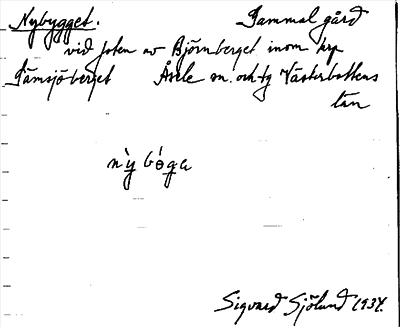 Nybygget. Gammal gård
vid foten av Björnberget inom krp
Lämsjöberget Åsele sn. och tg Västerbottens
län
nỳ bóga
Sigvard Sjölund 1934.